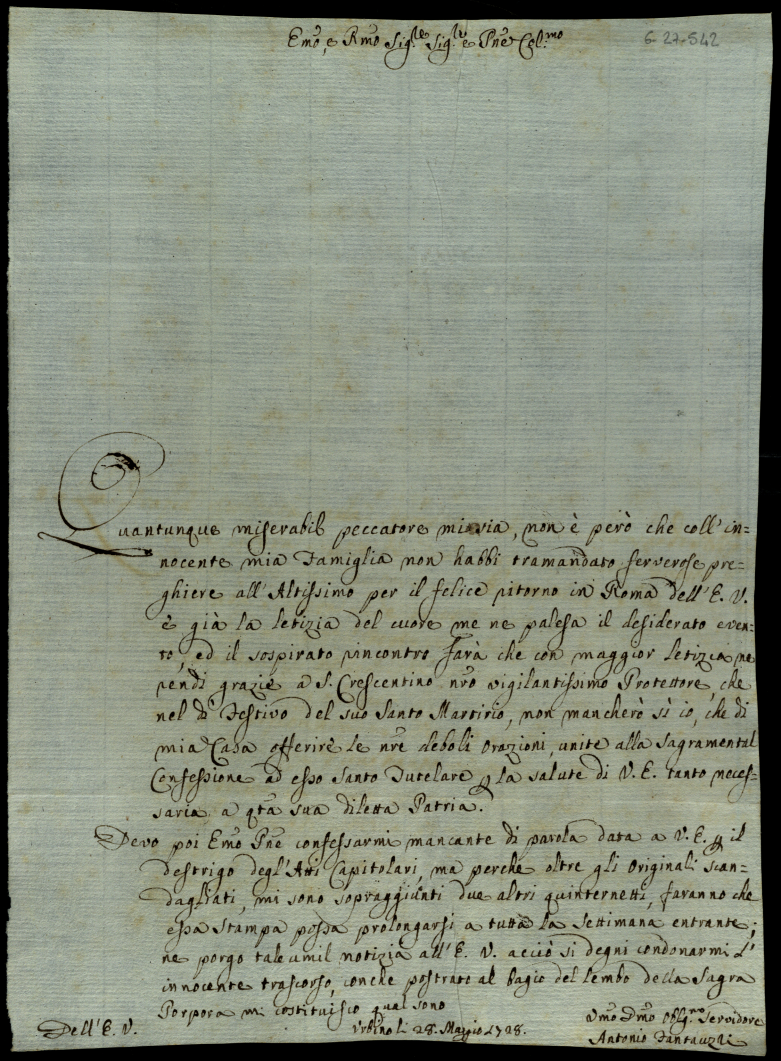 Emo, e Rmo Sig.re Sig.re e Pne Col.mo
6-27-542
Quantunque miserabil peccatore mi sia, non è però che coll' in=
nocente mia Famiglia non habbi tramandato ferverose pre=
ghiere all' Altissimo per il felice ritorno in Roma dell' E. V.
e già la letizia del cuore me ne palesa il desiderato even=
to, ed il sospirato rincontro farà che con maggior letizia ne
rendi grazie a S. Crescentino nro vigilantissimo Protettore, che
nel dì Festivo del suo Santo Martirio, non mancherò sì io, che di
mia Casa offerire le nre deboli orazioni, unite alla Sagramental
Confessione ad esso Santo Tutelare p la salute di V. E. tanto neces=
saria a qta sua diletta Patria.
Devo poi Emo Pne confessarmi mancante di parola data a V. E. p il
destrigo degl' Atti Capitolari, ma perche oltre gli Originali scan=
dagliati, mi sono sopraggiunti due altri quinternetti, faranno che
essa stampa possa prolongarsi a tutta la Settimana entrante;
ne porgo tale umil notizia all' E. V. acciò si degni condonarmi l'
innocente trascorso, conche postrato al bagio del lembo della Sagra
Porpora mi costituisco qual sono
Dell' E. V.
Urbino li 28. Maggio 1728.
Umo Dmo Oblg.mo Servidore
Antonio Fantauzzi